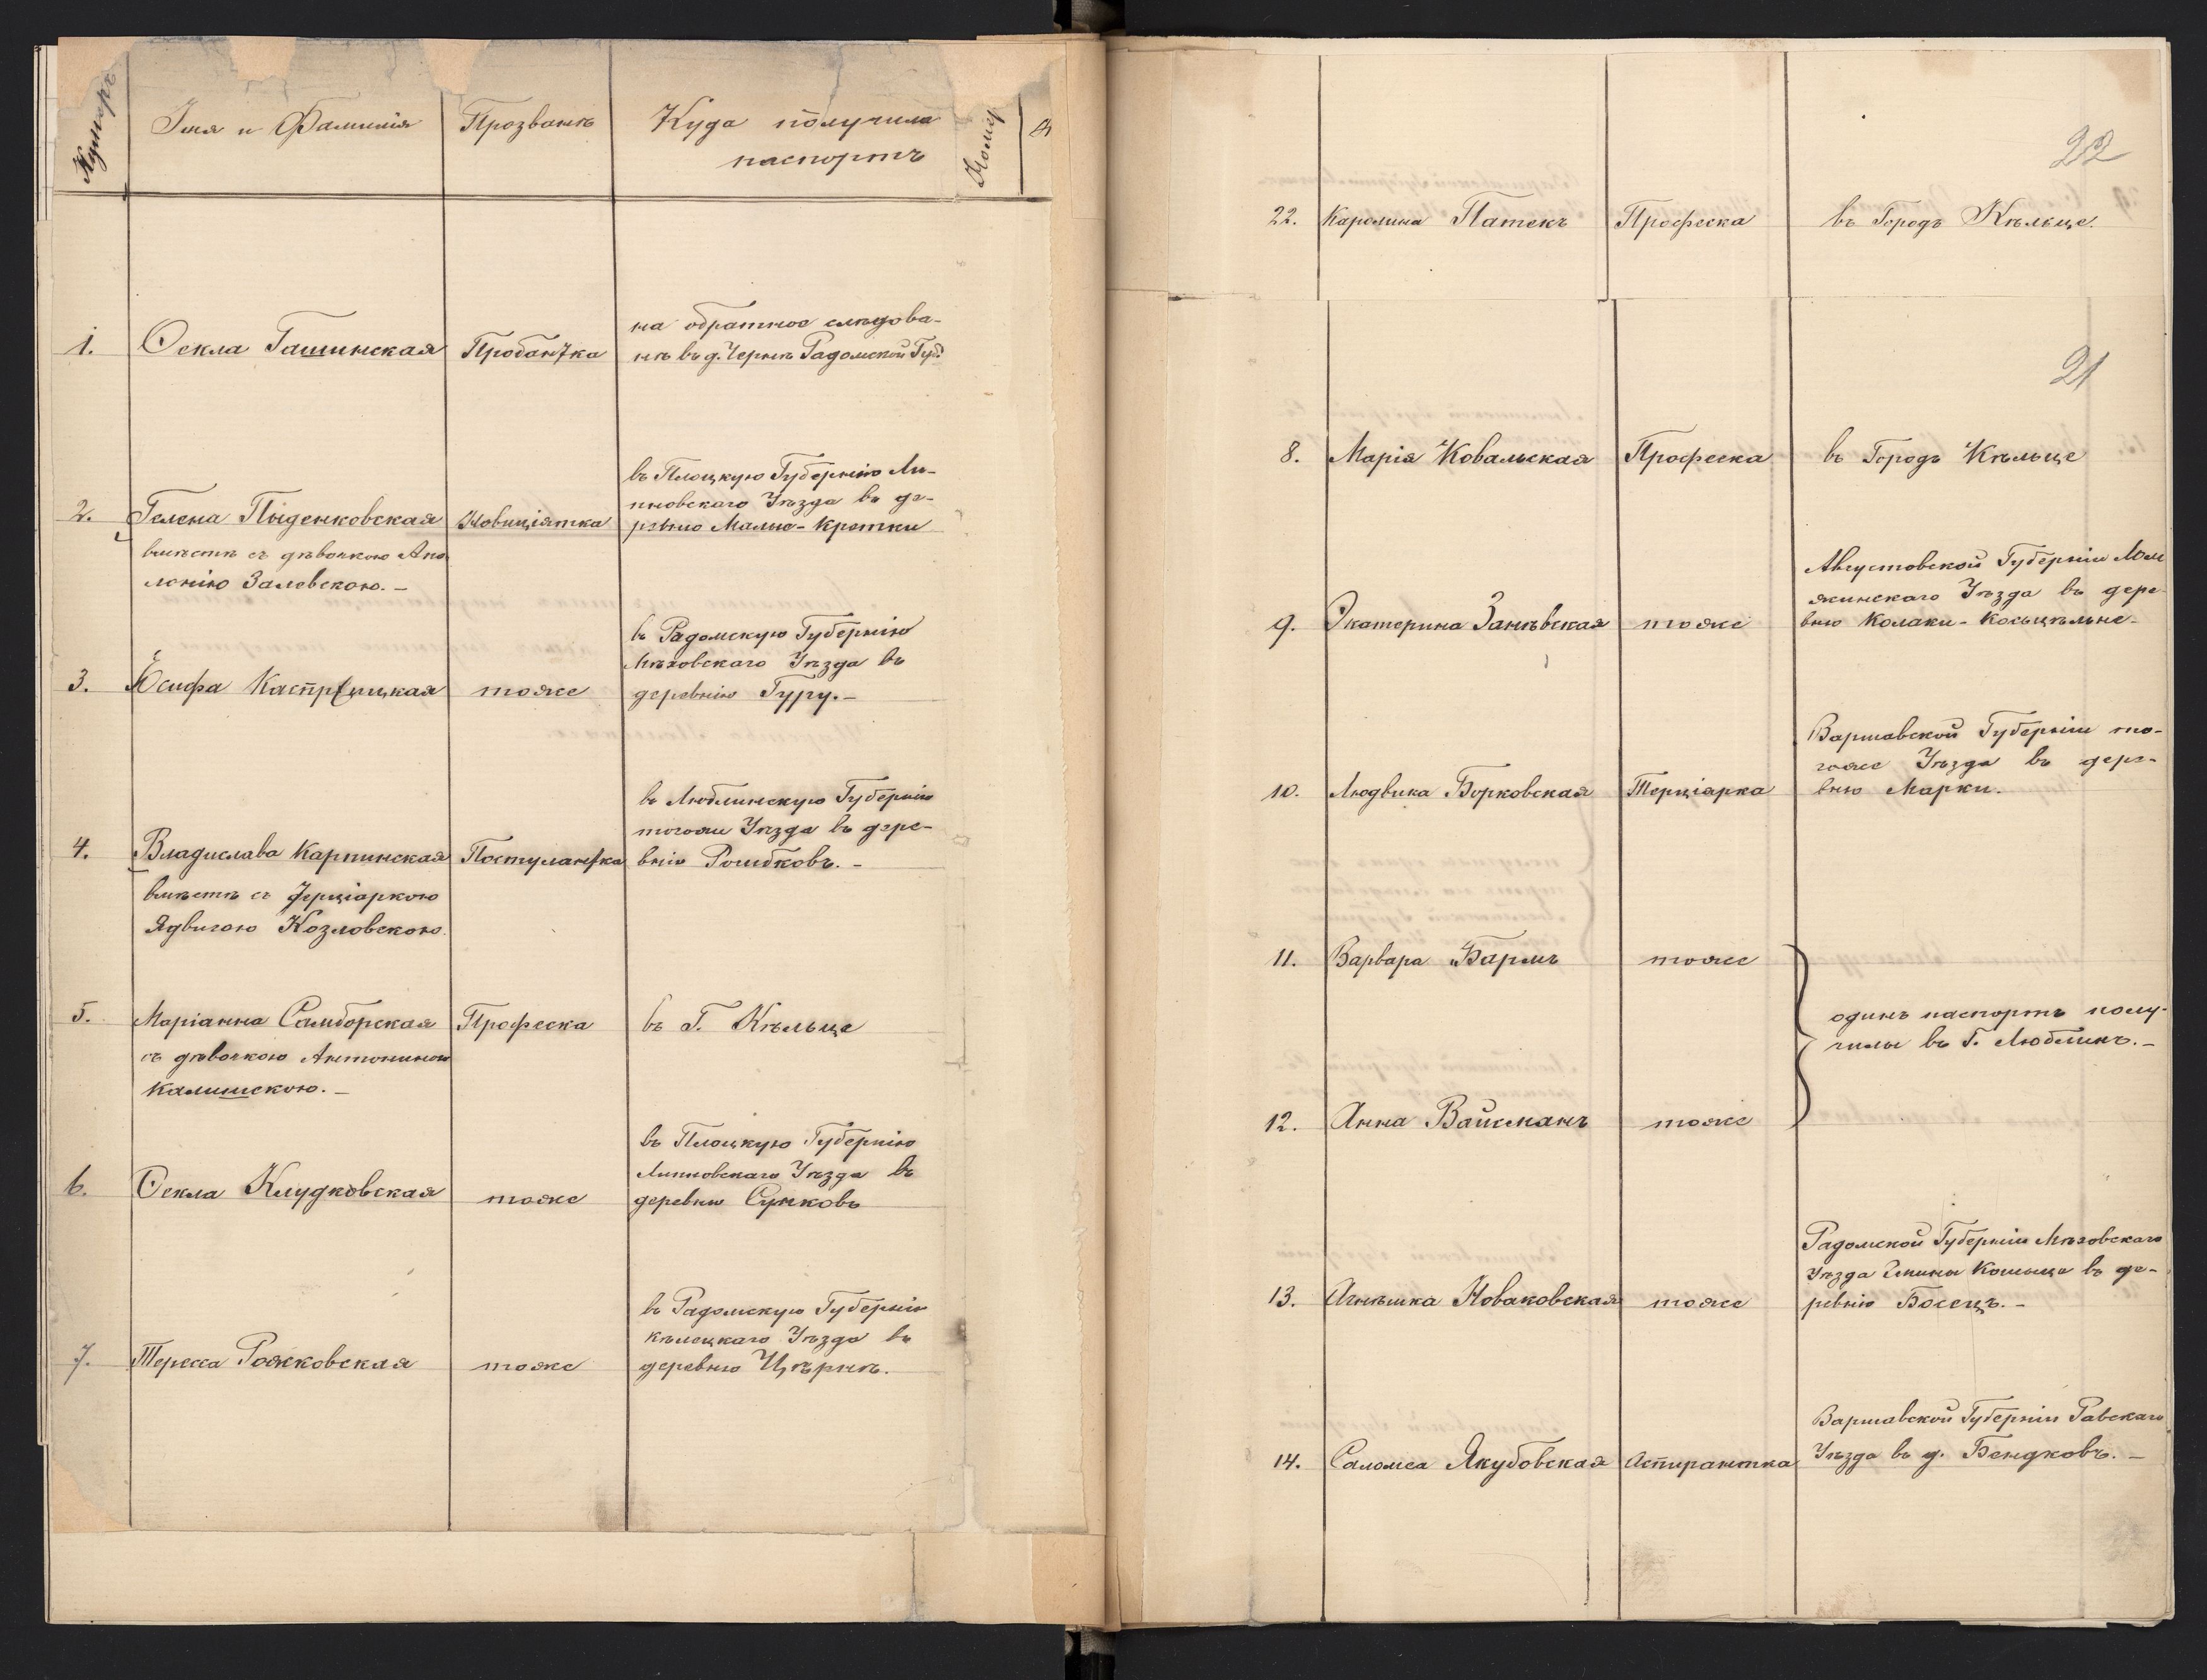 Нумеръ
Имя и Фамилія
Прозваніе
Куда получила
паспортъ
1.
Ѳекла Гашинская
Пробантка
на обратное слѣдова-
ніе въ д. Чернѣ Радомской Губ.
2.
Гелена Пыденковская
вмѣстѣ съ дѣвочкою Апо
лонію Залевскою. -
Новиціятка
въ Плоцкую Губернію Ли-
пновскаго Уѣзда въ де-
ревню Малыо-Кретки
3.
Юсифа Каспржицкая
тоже
въ Радомскую Губернію
Мѣховскаго Уѣзда въ
деревнію Гуру. -
4.
Владислава Карпинская
вмѣстѣ съ Терціаркою
Ядвигою Козловскою.
Постулантка
въ Люблинскую Губернію
тогожи Уѣзда въ дере-
внію Ромбковъ. -
5.
Маріанна Самборская
съ дѣвочкою Антониною
Калишскою. -
Професка
въ Г. Кѣльце
6.
Ѳекла Клудковская
тоже
въ Плоцкую Губернію
Липновскаго Уѣзда въ
деревню Сумковъ
7.
Тереса Рожковская
тоже
въ Радомскую Губернію
Кѣлецкаго Уѣзда въ
деревню Цѣрнѣ.
Номер
22
22.
Каролина Патекъ
Професка
въ Городъ Кѣльце.
21
8.
Марія Ковальская
Професка
въ Городъ Кѣльце
9.
Экатерина Занѣвская
тоже
Августовской Губерніи Лом
жинскаго Уѣзда въ дере-
внію Колаки-Косьцѣльне-
10.
Людвика Борковская
Терціарка
Варшавской Губерніи то-
гоже Уѣзда въ дере-
внію Марки.
11.
Варвара Бармъ
тоже
одинъ паспортъ полу-
чилы въ Г. Люблинъ. -
12.
Анна Вайсманъ
тоже
13.
Агнѣшка Новаковская
тоже
Радомской Губерніи Мѣховскаго
Уѣзда Гмины Кошыце въ де-
ревнію Босецъ. -
14.
Саломея Якубовская
Аспирантка
Варшавской Губерніи Равскаго
Уѣзда въ д. Бендковъ. -